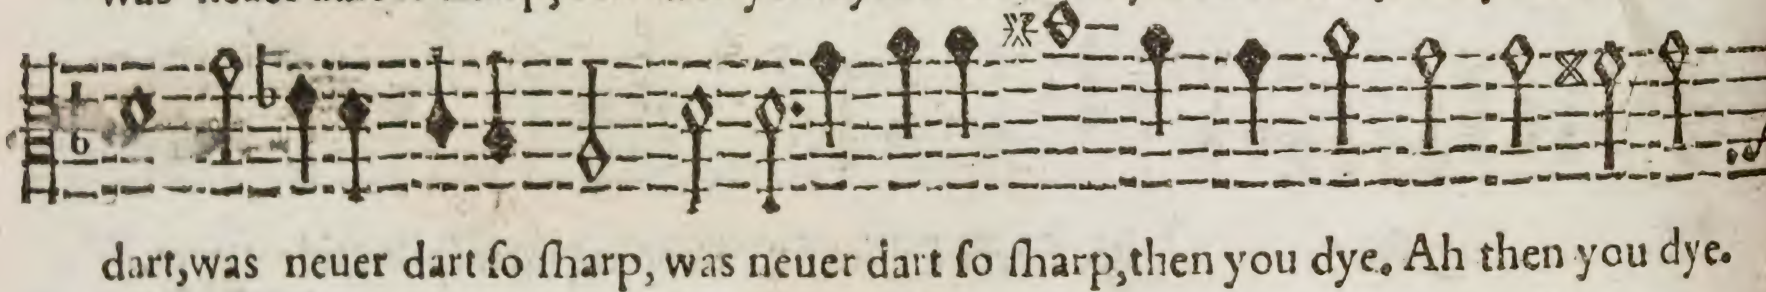 was neuer
6
dart,was neuer dart ſo ſharp, was neuer dart ſo ſharp,then you dye. Ah then you dye.